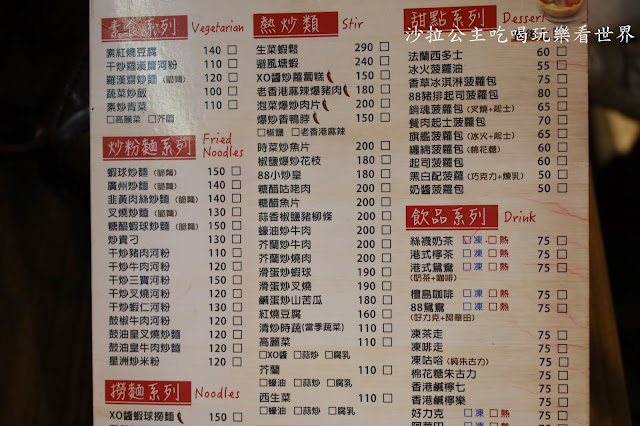 沙拉公主吃喝玩樂看世界
素食系列 Vegetarian
素紅燒豆腐 140 □
干炒羅漢齋河粉 110 □
羅漢齋炒麵(脆麵) 120 □
蔬菜炒飯 100 □
素炒青菜 110 □
□高麗菜 □芥蘭
炒粉麵系列 Fried Noodles
蝦球炒麵(脆麵) 150 □
廣州炒麵(脆麵) 140 □
韭黃肉絲炒麵(脆麵) 140 □
叉燒炒麵(脆麵) 130 □
糖醋蝦球炒麵(脆麵) 150 □
炒貴刁 130 □
干炒豬肉河粉 110 □
干炒牛肉河粉 120 □
干炒三寶河粉 150 □
干炒蝦仁河粉 130 □
鼓椒牛肉河粉 120 □
鼓油皇叉燒炒麵 120 □
鼓油皇牛肉炒麵 120 □
星洲炒米粉 120 □
撈麵系列 Noodles
XO醬蝦球撈麵 150 □
熱炒類 Stir
生菜蝦鬆 290 □
避風塘蝦 240 □
XO醬炒蘿蔔糕 150 □
老香港麻辣爆豬肉 180 □
泡菜爆炒肉片 200 □
爆炒香鴨脖 150 □
□椒鹽 □老香港麻辣
時菜炒魚片 200 □
椒鹽爆炒花枝 180 □
88小炒皇 180 □
糖醋咕咾肉 200 □
糖醋魚片 200 □
蒜香椒鹽豬柳條 200 □
蠔油炒牛肉 200 □
芥蘭炒牛肉 200 □
芥蘭炒燒肉 200 □
滑蛋炒蝦球 190 □
滑蛋炒叉燒 190 □
鹹蛋炒山苦瓜 180 □
紅燒豆腐 160 □
清炒時蔬(當季蔬菜) 110 □
高麗菜 110 □
□XO醬 □蒜炒 □腐乳
芥蘭 110 □
□蠔油 □蒜炒 □腐乳
西生菜 110 □
□蠔油 □蒜炒 □腐乳
甜點系列 Dessert
法蘭西多士 60 □
冰火菠蘿油 55 □
香草冰淇淋菠蘿包 65 □
88豬排起司菠蘿包 80 □
銷魂菠蘿包(叉燒+起士) 65 □
餐肉起士菠蘿包 65 □
旗艦菠蘿包(冰火+起士) 65 □
纏綿菠蘿包(棉花糖) 55 □
起司菠蘿包 55 □
黑白配菠蘿包(巧克力+煉乳) 50 □
奶醬菠蘿包 50 □
飲品系列 Drink
絲襪奶茶 □凍 □熱 75 □
港式檸茶 □凍 □熱 75 □
港式鴛鴦 □凍 □熱 75 □
(奶茶+咖啡)
檀島咖啡 □凍 □熱 75 □
88鴛鴦 □凍 □熱 75 □
(好力克+阿華田)
凍茶走 75 □
凍啡走 75 □
凍咕咕(純朱古力) 75 □
棉花糖朱古力 75 □
香港鹹檸七 75 □
香港鹹檸樂 75 □
好力克 □凍 □熱 75 □